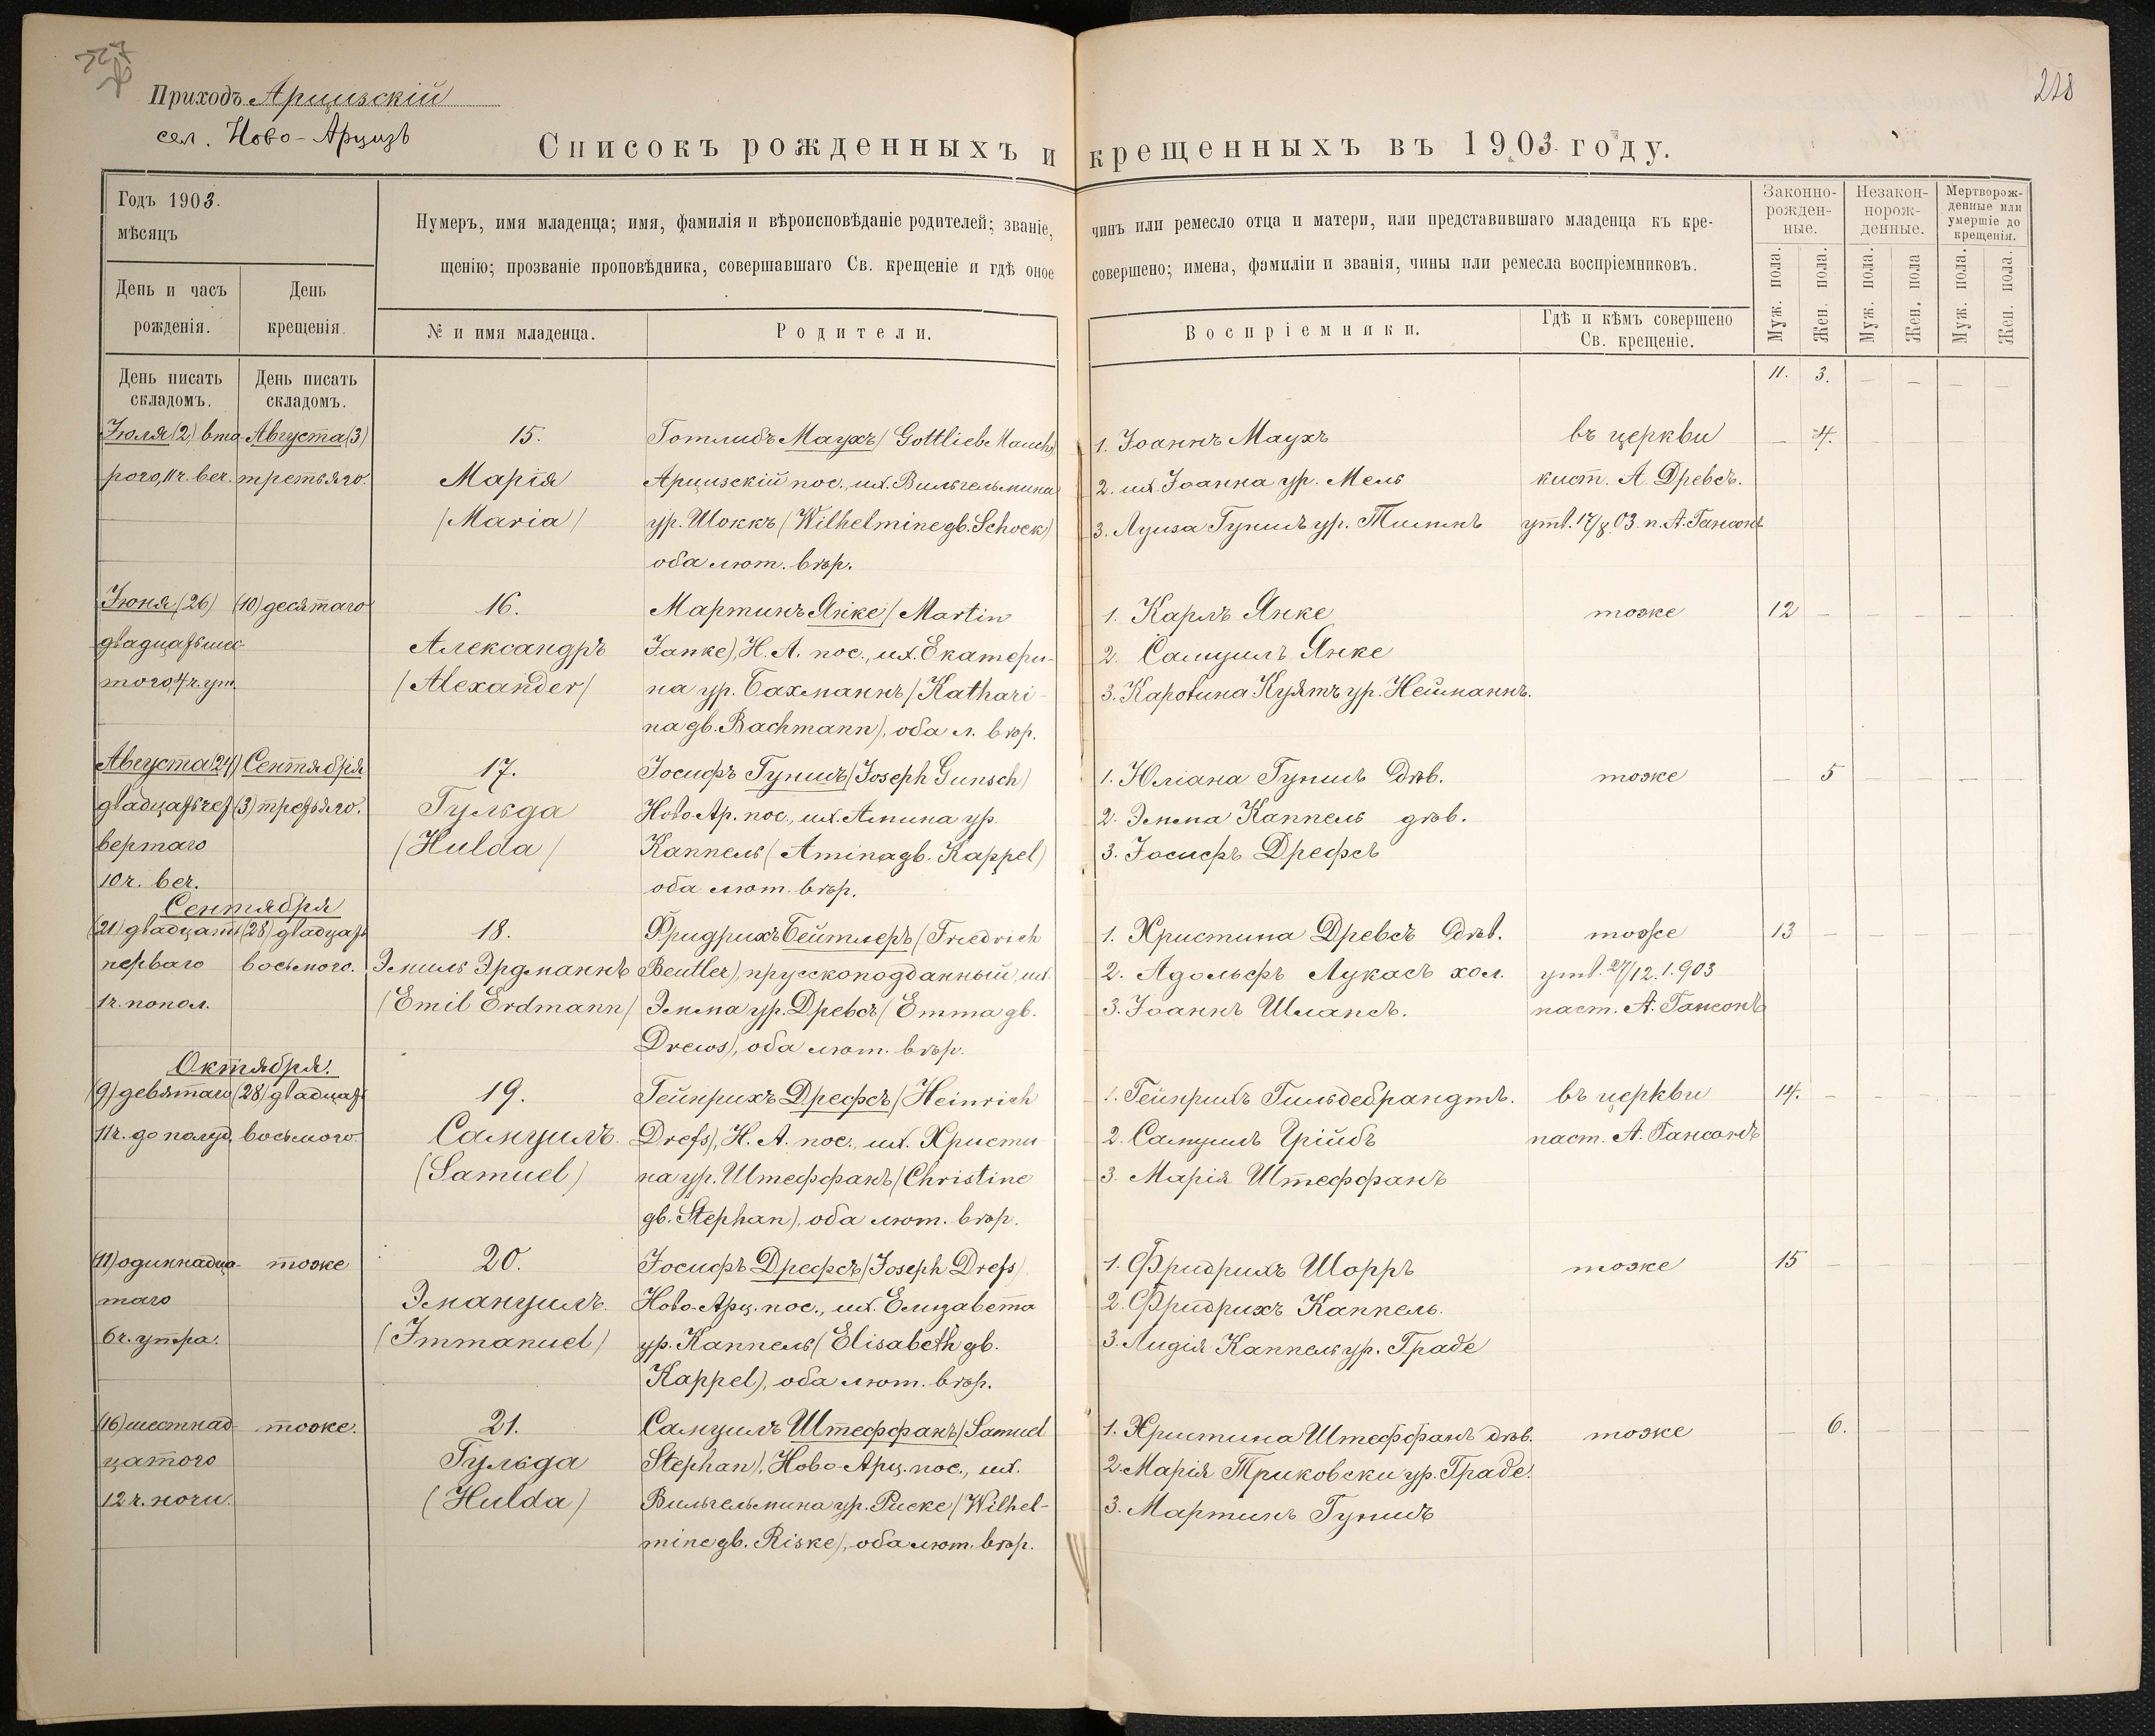 218
Приходъ Арцизскій
сел. Ново-Арцизъ
Списокъ рожденныхъ и крещенныхъ въ 1903 году.
Годъ 1903.
мѣсяцъ
Нумеръ, имя младенца; имя, фамилія и вѣроисповѣданіе родителей; званіе, чинъ или ремесло отца и матери, или представившаго младенца къ кре-
щенію; прозваніе проповѣдника, совершавшаго Св. крещеніе и гдѣ оное совершено; имена, фамиліи и званія, чины или ремесла воспріемниковъ.
Законно-
рожден-
ные.
Незакон-
норож-
денные.
Мертворож-
денные или
умершіе до
крещенія.
День и часъ
рожденія.
День
крещенія.
№ и имя младенца.
Родители.
Воспріемники.
Гдѣ и кѣмъ совершено
Св. крещеніе.
Муж. пола.
Жен. пола.
Муж. пола.
Жен. пола
Муж. пола.
Жен. пола.
День писать
складомъ.
День писать
складомъ.
11. 3. — — — —
Іюля (2) вто-
рого, 11 ч. веч.
Августа (3)
третьяго.
15.
Марія
(Maria)
Готлибъ Маухъ (Gottlieb Mauch)
Арцизскій пос., их. Вильгельмина
ур. Шоккъ (Wilhelmine gb. Schock)
оба лют. вѣр.
1. Іоаннъ Маухъ
2. их. Іоанна ур. Мель
3. Луиза Гуншъ ур. Тиммъ
въ церкви
кист. А. Древсъ.
утв. 17/8 03. п. А. Гансонъ
— 4.
Іюня (26)
двадцатьшес-
того, 4 ч. ут.
(10) десятаго
16.
Александръ
(Alexander)
Мартинъ Янке (Martin
Janke), Н. А. пос., их. Екатери-
на ур. Бахманнъ (Kathari-
na gb. Bachmann), оба л. вѣр.
1. Карлъ Янке
2. Самуилъ Янке
3. Каролина Куятъ ур. Нейманнъ.
тоже
12 — — — — —
Августа (24)
двадцатьчет-
вертаго
10 ч. веч.
Сентября
(3) третьяго.
17.
Гульда
(Hulda)
Іосифъ Гуншъ (Joseph Gunsch)
Ново Ар. пос., их. Амина ур.
Каппель (Amina gb. Kappel)
оба лют. вѣр.
1. Юліана Гуншъ дѣв.
2. Эмма Каппель дѣв.
3. Іосифъ Дрефсъ
тоже
— 5 — — — —
Сентября
(21) двадцать
перваго
1 ч. попол.
(28) двадцать
восьмого.
18.
Эмиль Эрдманнъ
(Emil Erdmann)
Фридрихъ Бейтлеръ (Friedrich
Beutler), прусскоподданный, их.
Эмма ур. Древсъ (Emma gb.
Drews), оба лют. вѣр.
1. Христина Древсъ дѣв.
2. Адольфъ Лукасъ хол.
3. Іоаннъ Шлапсъ.
тоже
утв. 27/12. 1.903
паст. А. Гансонъ
13 — — — — —
Октября.
(9) девятаго
11 ч. до полуд.
(28) двадцать
восьмого.
19.
Самуилъ.
(Samuel)
Гейнрихъ Дрефсъ (Heinrich
Drefs), Н. А. пос., их. Христи-
на ур. Штеффанъ (Christine
gb. Stephan), оба лют. вѣр.
1. Гейнрихъ Гильдебрандтъ.
2. Самуилъ Гріибъ
3. Марія Штеффанъ
въ церкви
паст. А. Гансонъ
14. — — — — —
(11) одиннадца-
таго
6 ч. утра.
тоже
20.
Эмануилъ.
(Immanuel)
Іосифъ Дрефсъ (Joseph Drefs)
Ново-Арц. пос., их. Елизавета
ур. Каппель (Elisabeth gb.
Kappel), оба лют. вѣр.
1. Фридрихъ Шорръ
2. Фридрихъ Каппель.
3. Лидія Каппель ур. Граде
тоже
15 — — — — —
(16) шестнад-
цатого
12 ч. ночи.
тоже.
21.
Гульда
(Hulda)
Самуилъ Штеффанъ (Samuel
Stephan), Ново-Арц. пос., их.
Вильгельмина ур. Риске (Wilhel-
mine gb. Riske), оба лют. вѣр.
1. Христина Штеффанъ дѣв.
2. Марія Триковски ур. Граде.
3. Мартинъ Гуншъ
тоже
— 6. — — — —